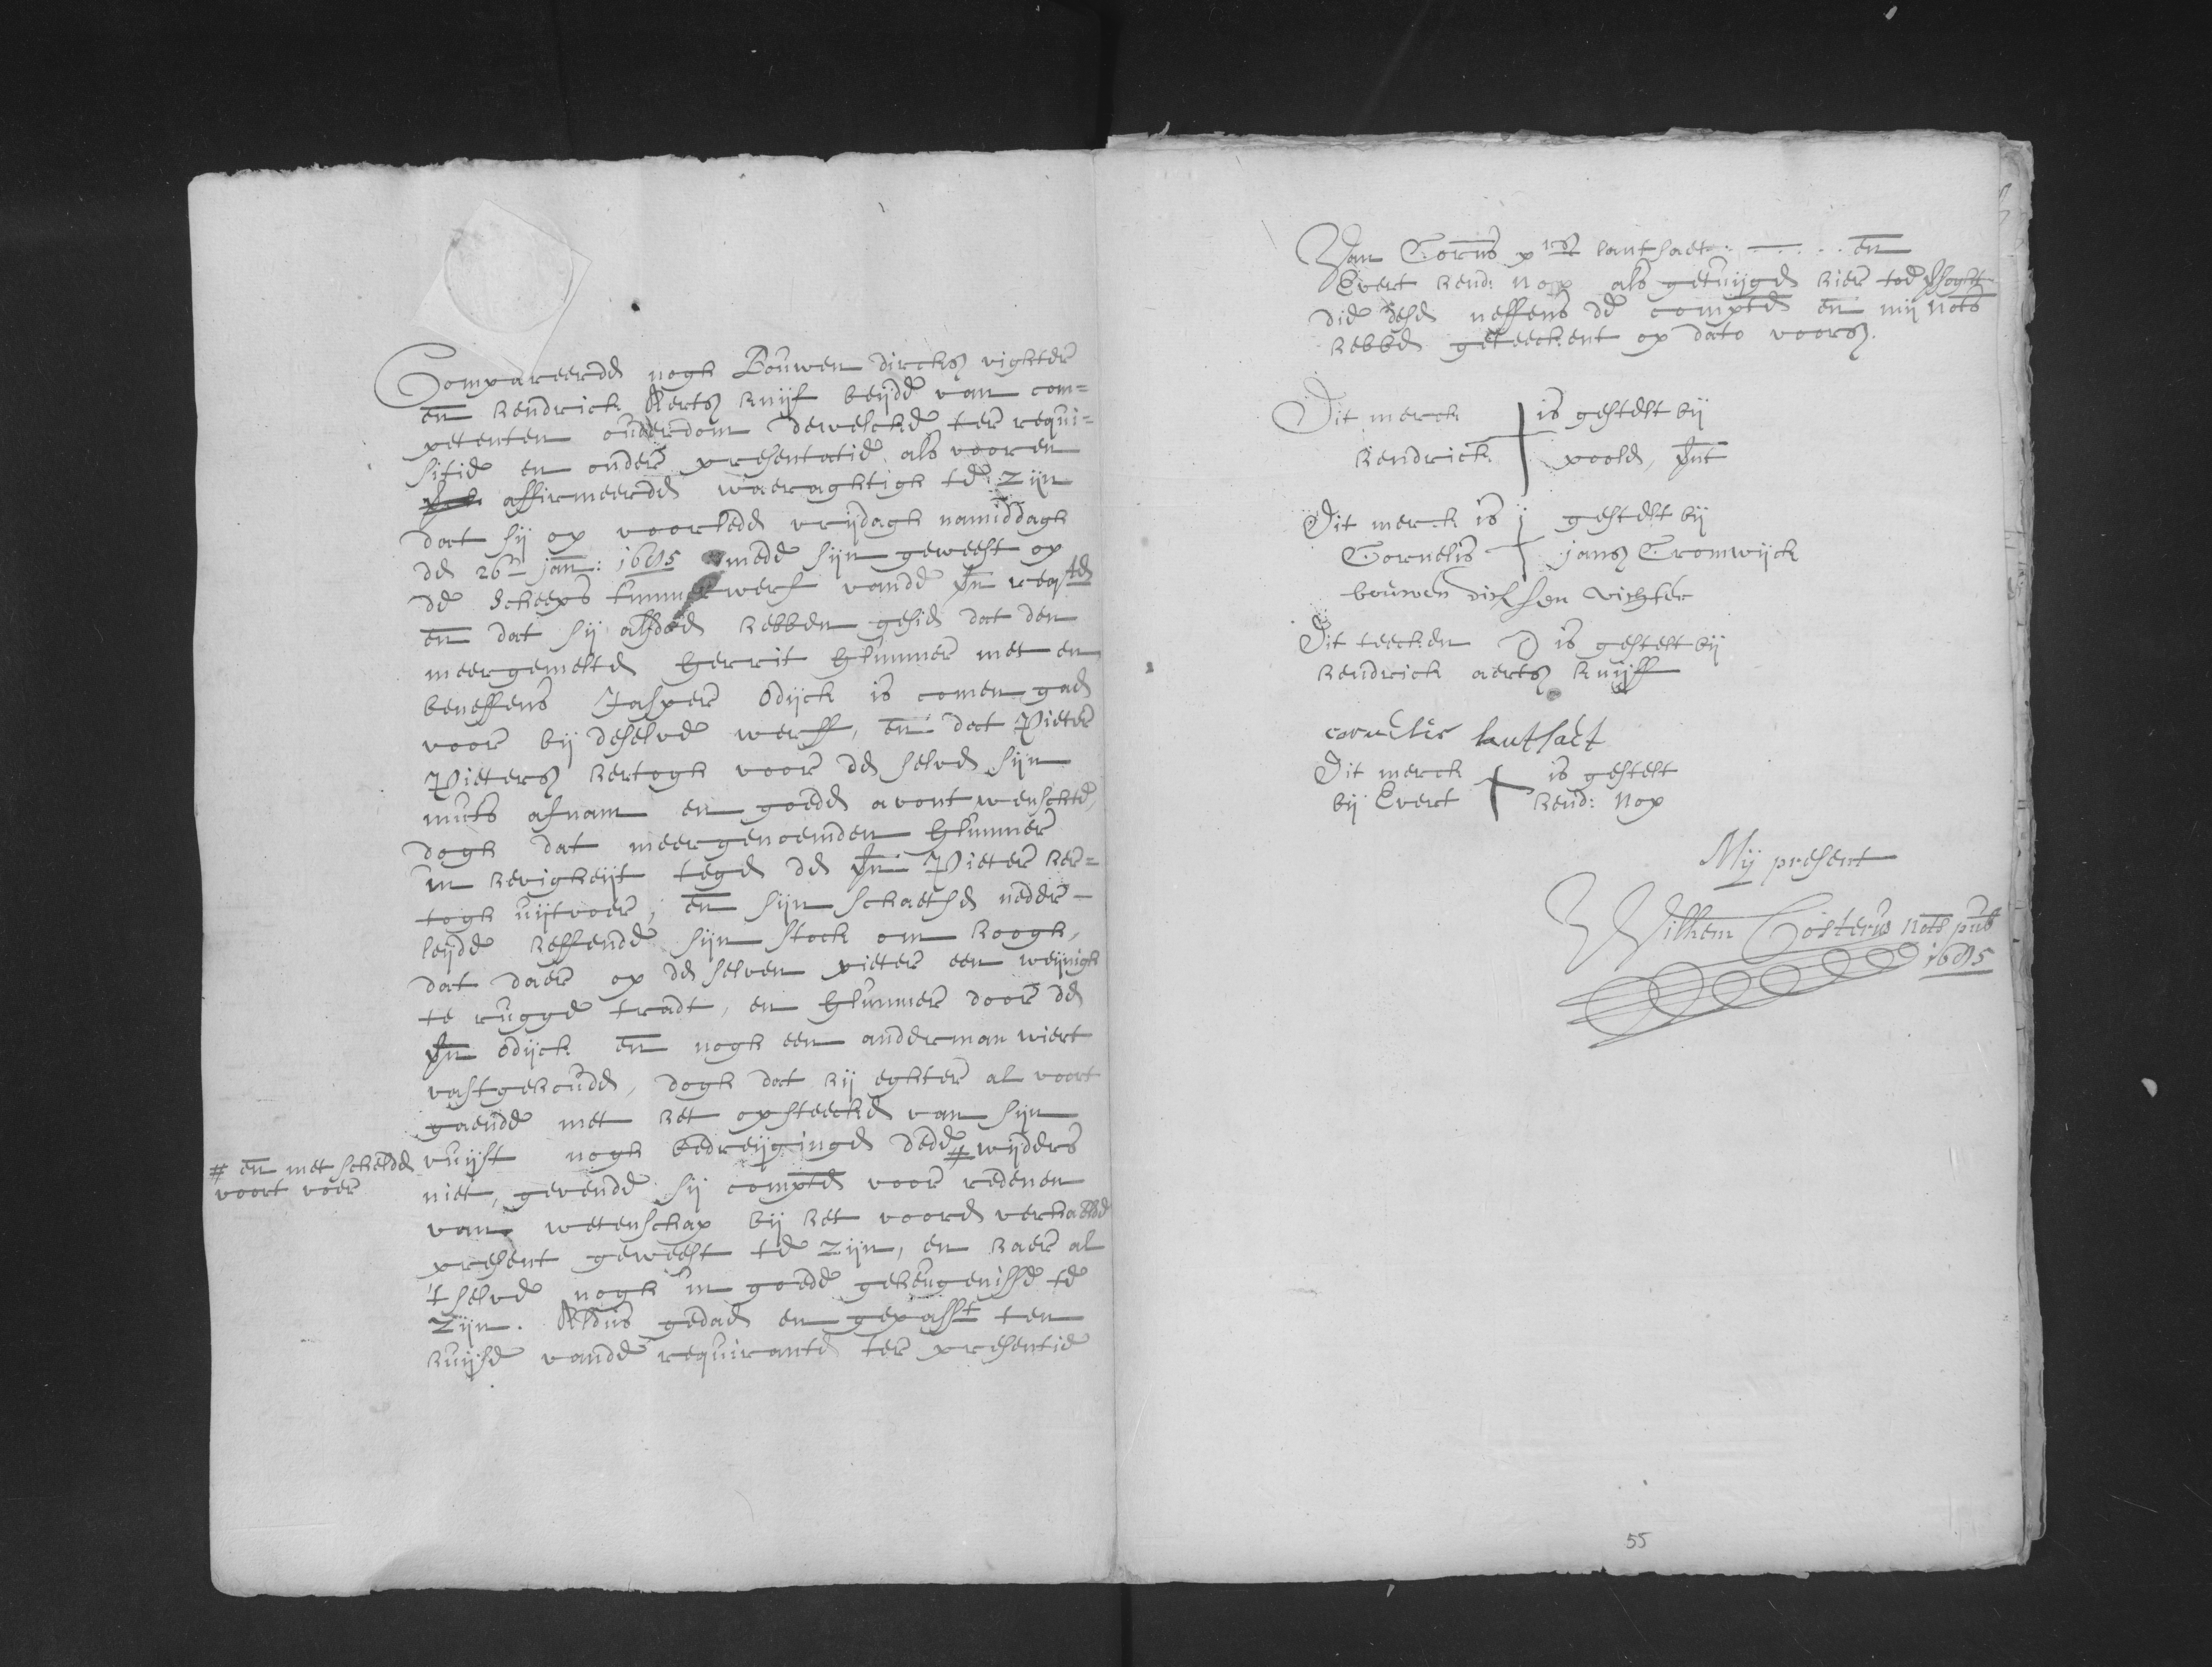 Compareerde nogh Bouwen dircksz righter
en hendrick Aertsz kuijf beijde van com=
petenten ouderdom dewelcke ter requi=
sitie en onder presentatie als vooren
affirmeerden waeraghtigh te zijn
dat sij op voorlede vrijdagh namiddagh
den 26en jan: 1695 mede sijn geweest op
de scheeps timmerwerf vande
en dat sij alsdoen hebben gesien dat den
meergemelten Gerrit Glimmer met en
beneffens Jasper Odijck is comen gaen
voor bij deselve werff, en dat Pieter
Pietersz hertogh voor den selven sijn
muts afnam en goeden avont wenschte,
dogh dat meergenoemden Glimmer
in hevigheijt tegen den Pieter her=
togh uijtvoer, en sijn schaetsen neder-
leijde heffende sijn stock om hoogh,
dat daer op den selven pieter een weijnigh
te rugge tradt, en Glimmer door den
Odijck en nogh een anderman wiert
vastgehouden, dogh dat hij eghter al voort
gaende met het opsteecken van sijn
vuijst nogh bedreijgingen dede # wijders
# en met schelden
voort voer
niet, gevende sij compten voor redenen
van wetenschap bij het vooren verhaelde
present geweest te zijn, en haer al
't selve nogh in goede geheugenisse te
zijn. Aldus gedaen en gepasst ten
huijse vande requirante ter presentie
Van Corns lantsaet: en
Evert hend: Nop als getuijgen hier toe
die dese neffens de compten en mij nots
hebben geteeckent op dato voorsz.
Dit merck is gestelt bij
hendrick poolen,
Dit merck is gestelt bij
Cornelis jansz Cromwijck
bouwen dicksen richter
Dit teecken D is gestelt bij
hendrick aertsz kuijff
cornelis lantsaet
Dit merck is gestelt
bij Evert hend: Nop
Mij present
Wilhem Costerus nots pub
1695
55